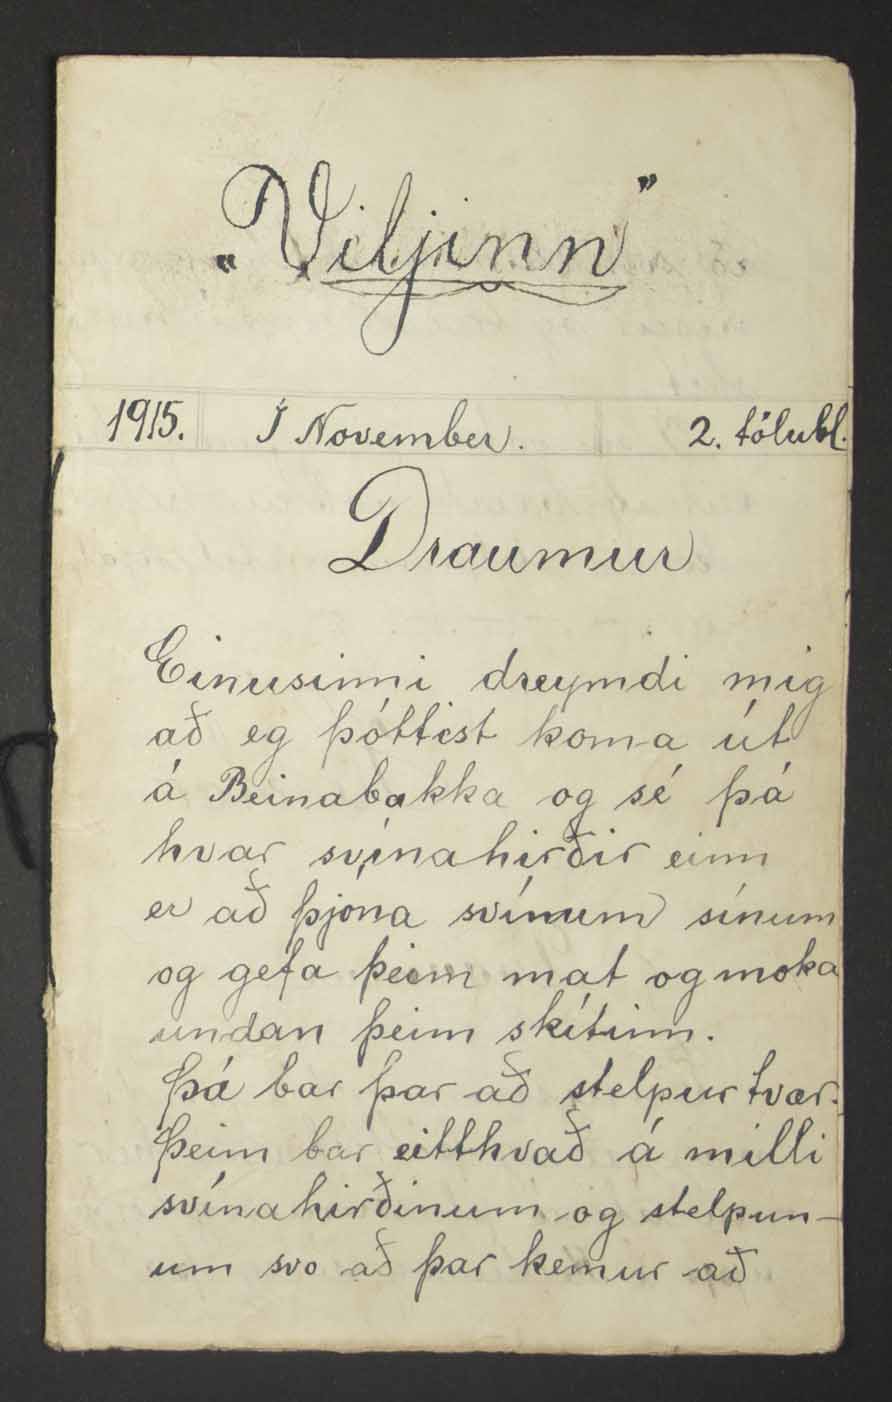 „Viljinn"
1915. Í November. 2. tölubl.
Draumur
Einusinni dreymdi mig
að eg þóttist koma út
á Beinabakka og sé þá
hvar svínahirðir einn
er að þjóna svínum sínum
og gefa þeim mat og moka
undan þeim skítinn.
Þá bar þar að stelpur tvær.
Þeim bar eitthvað á milli
svínahirðinum og stelpun-
um svo að þar kemur að